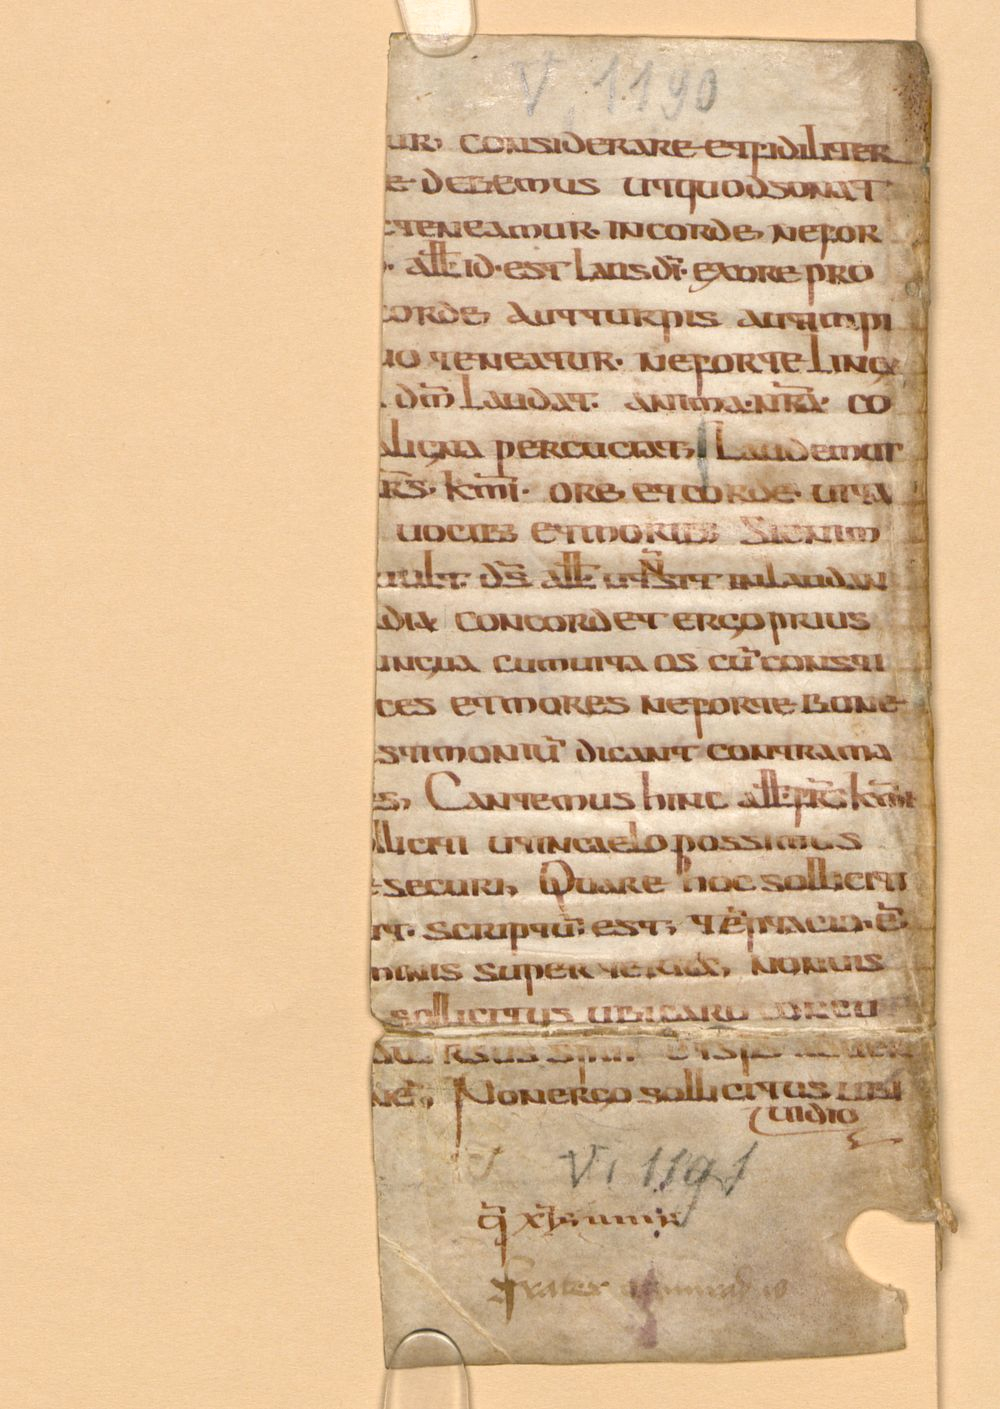 V. 1190
ur, considerare et fidiliter
e debemus ut quod sonat
teneamur. in corde, ne for
. all̄ id. est laus dī. ex ore pro
corde, aut turpis aut impi
uo teneatur. ne forte ling
. dm̄ laudat. anima. nr̄a. co
aligna percutiat; Laudemus
rs̄. km̄i. ore, et corde. uita
uocib; et morib; Sic enim
uult. dn̄s all̄ ut ñ sit in laudan
dix concordet ergo prius
ingua cum uita os cū consti
ces et mores ne forte bone
stimoniū dicant contra ma
es, Cantemus hinc all̄. frs̄ km̄i
olliciti ut in caelo possimus
e securi, Quare hoc solliciti
it. scriptū est; tēptacio. ē
minis super terra, non uis
sollicitus ubi caro concu
aduersus spm̄ et sps̄ aduer
ne, Non ergo sollicitus ubi
uidio
V. 1191
q̄ x
frater